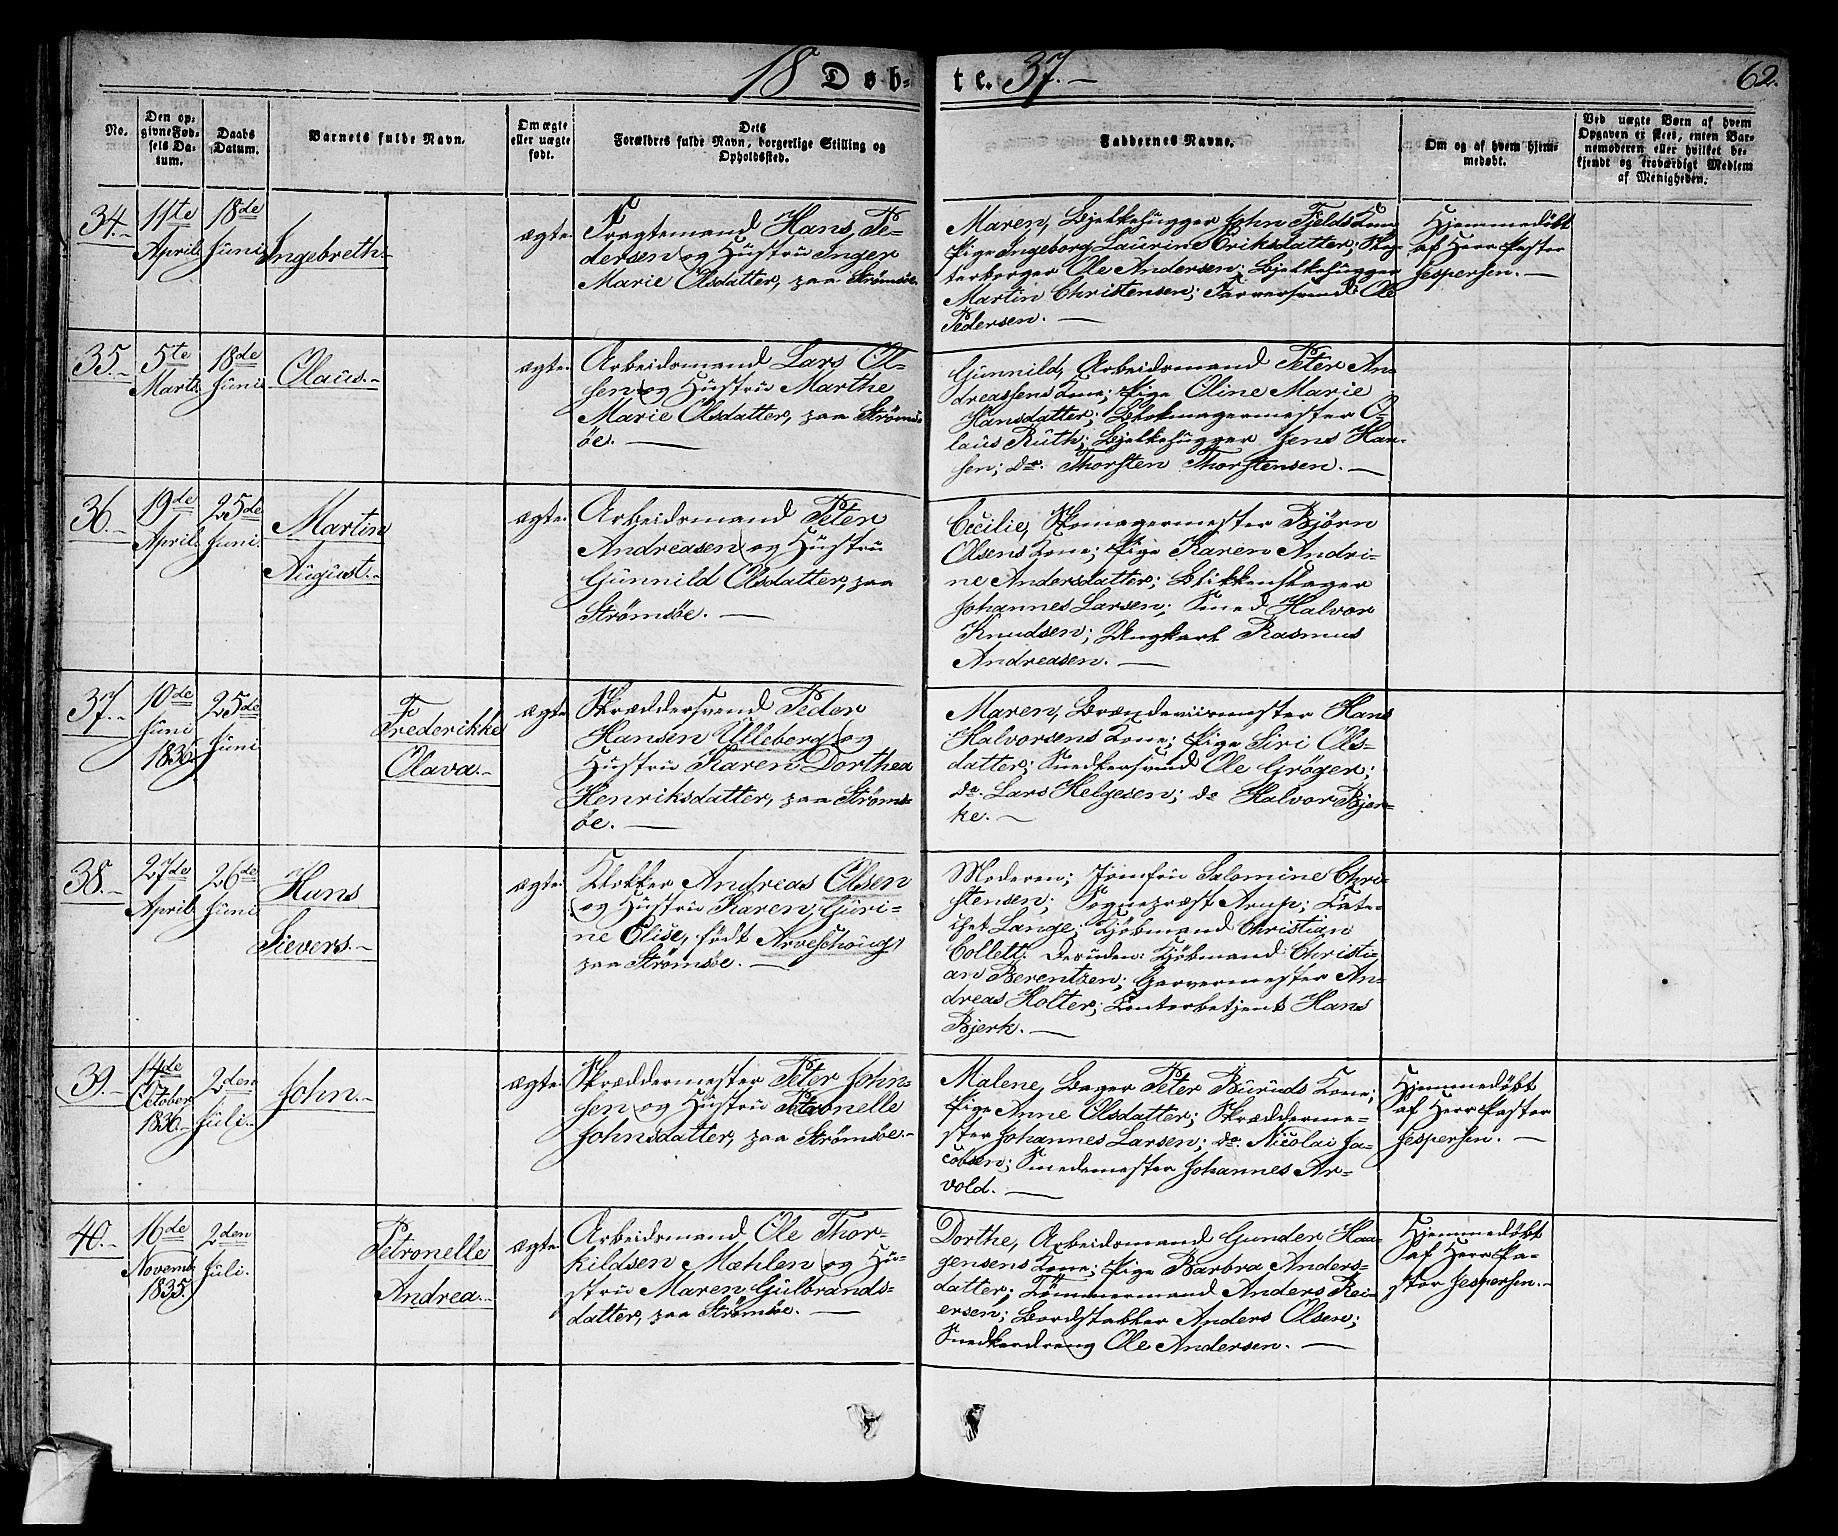 18 Døb-
te. 37.-
62.
No.
Den op-
givne Fød-
sels Da-
tum.
Daabs
Datum.
Barnets fulde Navn.
Om ægte
eller uægte
født.
Dets
Forældres fulde Navn, borgerlige Stilling og
Opholdssted.
Faddernes Navne.
Om og af hvem hjem-
medøbt.
Ved uægte Børn af hvem
Opgaven er skeet, enten Bar-
nemoderen eller hvilket be-
kjendt og troværdigt Medlem
af Menigheden.
34.-
11te
April.
18de
Juni
Ingebreth.-
ægte.
Fragtemand Hans Pe-
dersen og Hustrü Inger
Marie Olsdatter, paa Strømsøe.
Maren, Bjelkehugger John Fjelds Kone
Pige Ingeborg Laurine Eriksdatter;
Ole Andersen; Bjelkehugger
Martin Christensen; Farversvend Ole
Pedersen. —
Hjemmedöbt
af Herr Pastor
Jespersen. —
35.-
5te
Marts.
18de
Juni
Olaüs.-
ægte.
Arbeidsmand Lars Ol-
sen og Hustrü Marthe
Marie Olsdatter, paa Strøms-
öe. —
Günnild, Arbeidsmand Peter An-
dreassens Kone; Pige Oline Marie
Hansdatter; Blokmagermester O-
laüs Rüth; Bjelkehugger Jens Han-
sen; do. Thorsten Thorstensen. —
36.-
19de
April.
25de
Juni.
Martin
Aügüst.-
ægte.
Arbeidsmand Peter
Andreasen og Hüstrü
Günnild Olsdatter, paa
Strømsöe. —
Cecilie, Skomagermester Bjørn
Olsens Kone; Pige Karen Andri-
ne Andersdatter; Blikkenslager
Johannes Larsen; Smed Halvor
Knudsen; Ungkarl Rasmus
Andreasen. —
37.-
10de
Juni
1836.
25de
Juni
Frederikke
Olava.-
ægte.
Skræddersvend Peder
Hansen Ulleberg og
Hustrü Karen Dorthea
Henriksdatter, paa Strøms-
öe. —
Maren, Brændeviismester Hans
Halvorsens Kone; Pige Siri Ols-
datter; Snedkersvend Ole Gröger;
do. Lars Helgesen; do Halvor Bjer-
ke. —
38.-
27de
April
26de
Juni
Hans
Sievers.-
ægte.
Klokker Andreas Olsen
og Hustrü Karen Güri-
ne Elise, født Arveschoüg,
paa Strømsøe. —
Moderen; Jomfrü Salomine Chri-
stensen; Sognepræst Arup; Cate-
chet Lange; Kjöbmand Christian
Collett. Desuden: Kjöbmand Christi-
an Berentzen; Garvermester An-
dreas Holter; Contorbetjent Hans
Bjerk. —
39.-
14de
October
1836.-
2den
Jüli.-
John.-
ægte.
Skræddermester Peter John-
sen og Hüstrü Petronelle
Johnsdatter, paa Strømsøe.-
Malene, Bager Peter Buruds Kone;
Pige Anne Olsdatter; Skrædderme-
ster Johannes Larsen; do. Nicolai Ja-
cobsen; Smedemester Johannes Ar-
vold. —
Hjemmedöbt
af Herr Pastor
Jespersen. —
40.-
16de
Novemb.
1835.
2den
Jüli.
Petronelle
Andrea.-
ægte.
Arbeidsmand Ole Thor-
kildsen Mæhlen og Hü-
strü Maren Gülbrands-
datter, paa Strømsøe. —
Dorthe, Arbeidsmand Gunder Haa-
gensens Kone; Pige Barbra Anders-
datter; Tömmermand Anders Rei-
ersen; Bordstabler Anders Olsen;
Snedkerdreng Ole Andersen. —
Hjemmedöbt
af Herr Pa-
stor Jespersen.-